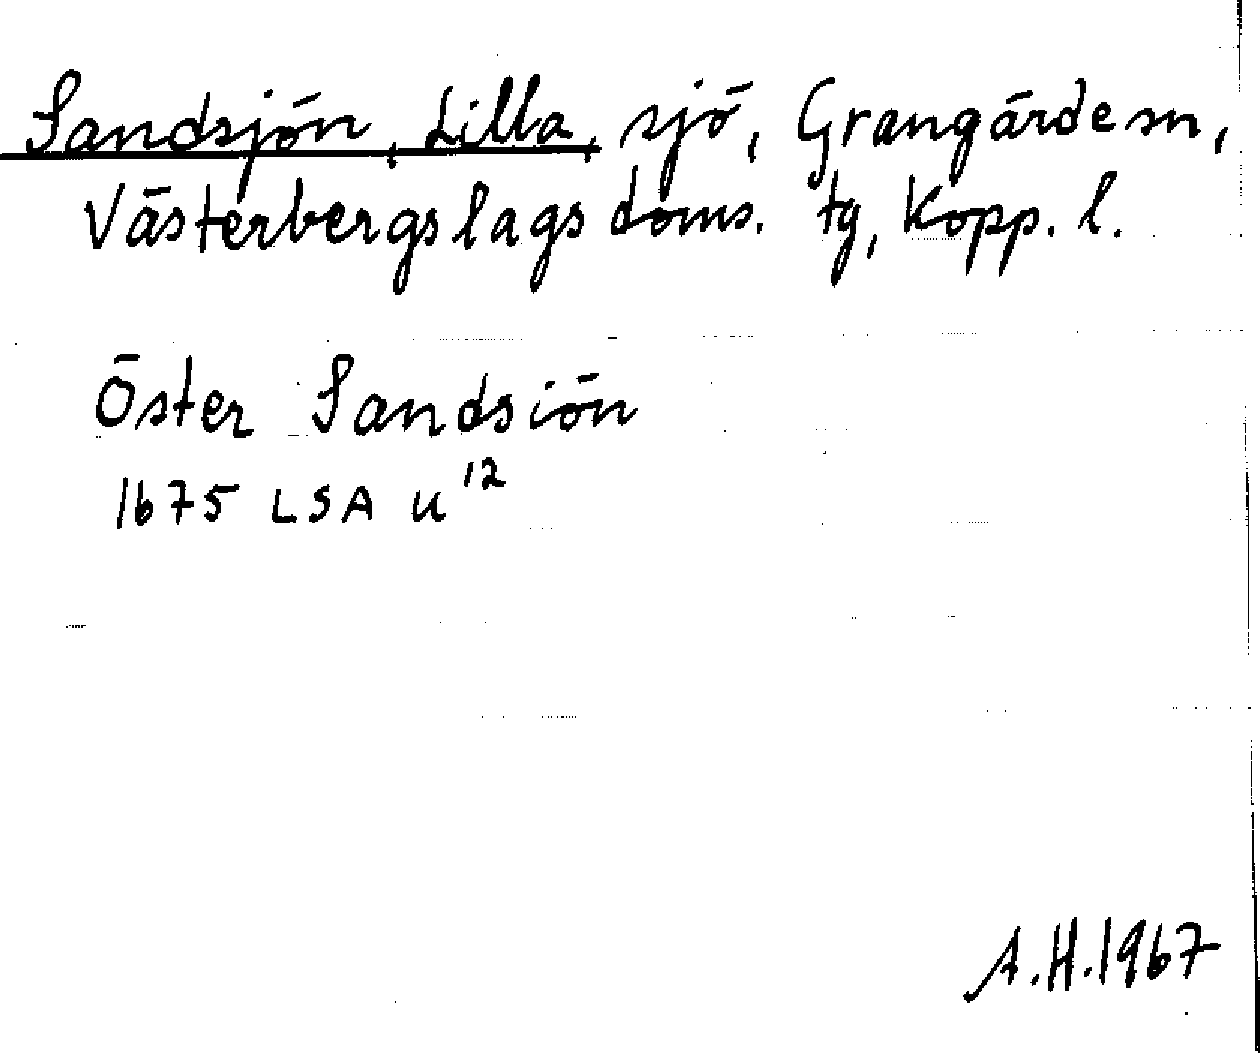 Sandsjön, Lilla, sjö, Grangärde sn,
Västerbergslags doms. tg, Kopp. l.
Öster Sandsiön
1675 LSA U12
A.H.1967